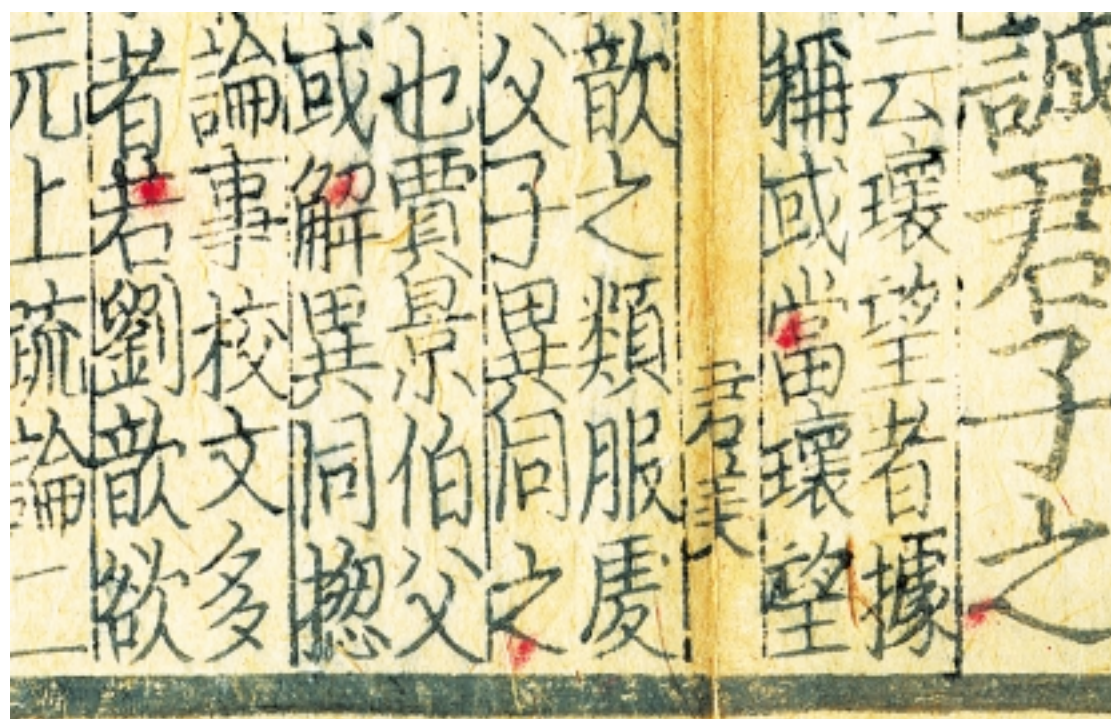 誠君子之
云瓌望者據
稱或當瓌望
君美
歆之類服虔
父子異同之
也賈景伯父
或解異同揔
論事校文多
者若劉歆欲
元上疏論二